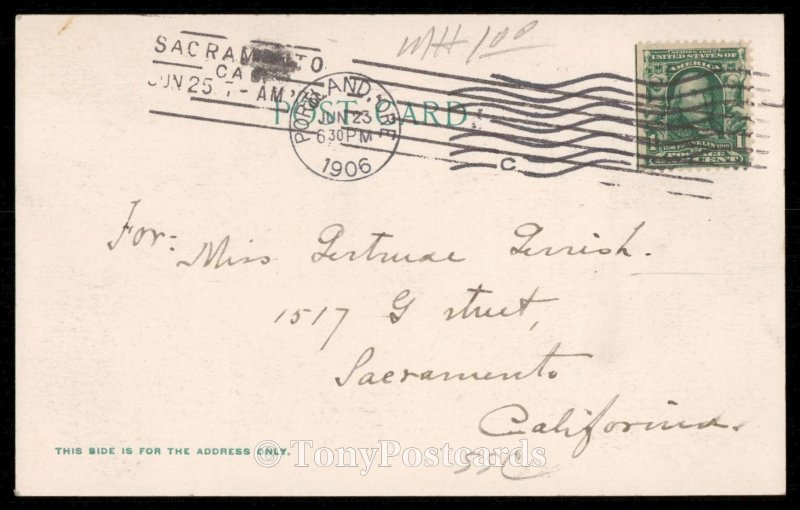 SACRAMENTO
CAL
JUN 25 1-AM
MH 100
PORTLAND, ORE
JUN 23
630PM
1906
POST CARD.
C
SERIES 1902
UNITED STATES OF
AMERICA
1 FRANKLIN 1
POSTAGE
ONE CENT
For:- Miss Gertrude Gerrish.
1517 G street,
Sacramento
California.
THIS SIDE IS FOR THE ADDRESS ONLY.
© TonyPostcards